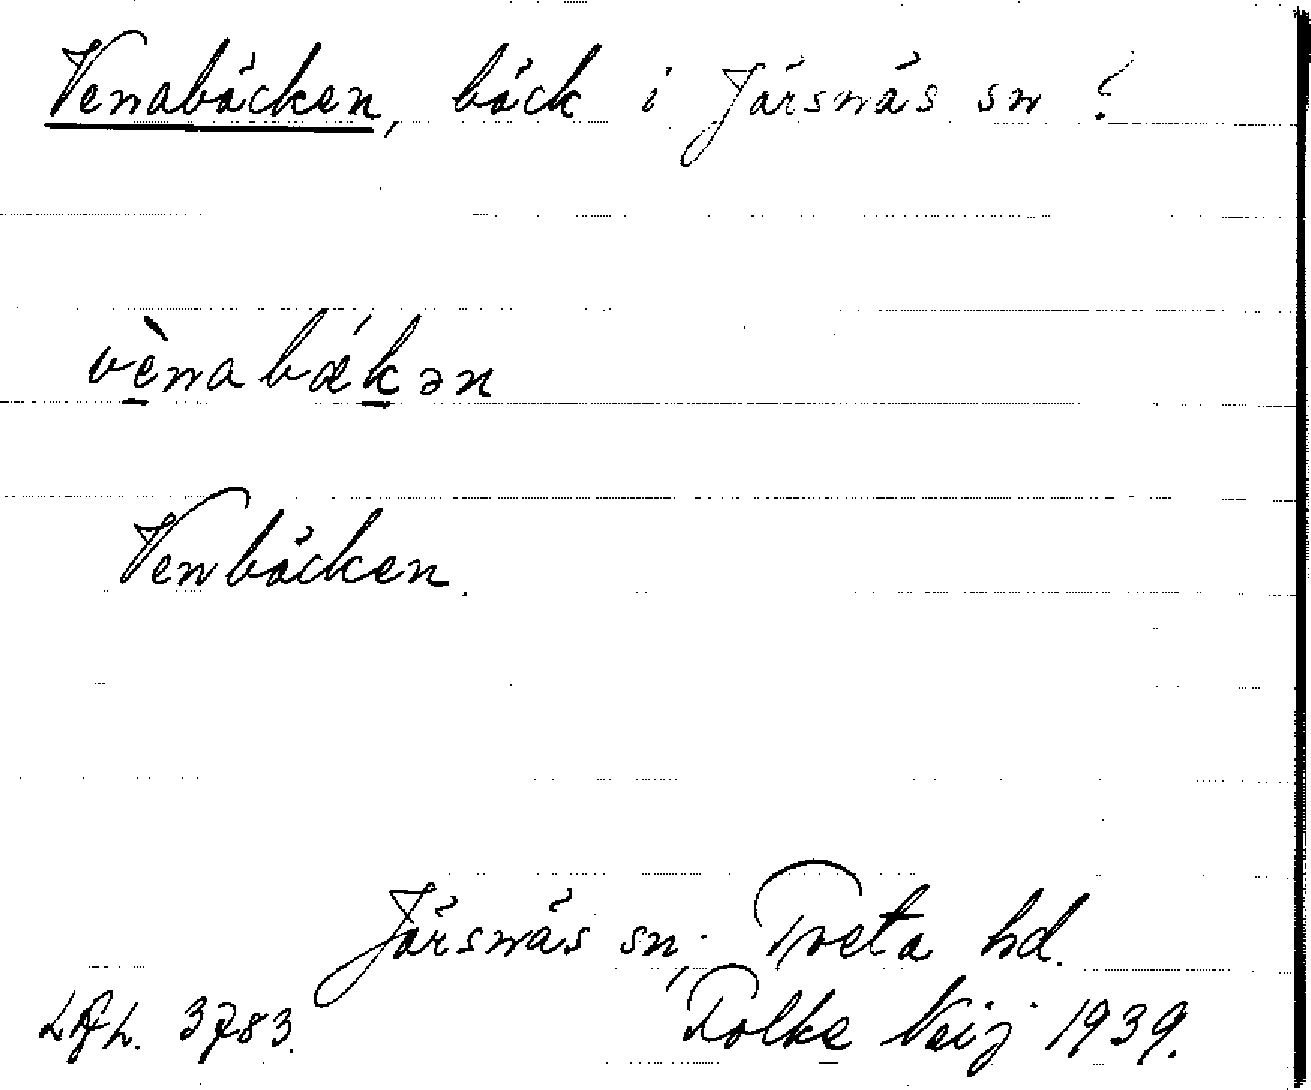 Venabäcken, bäck i Järsnäs sn?
vènabǽkən
Venbäcken.
Järsnäs sn; Tveta hd.
3783. Folke Neij 1939.